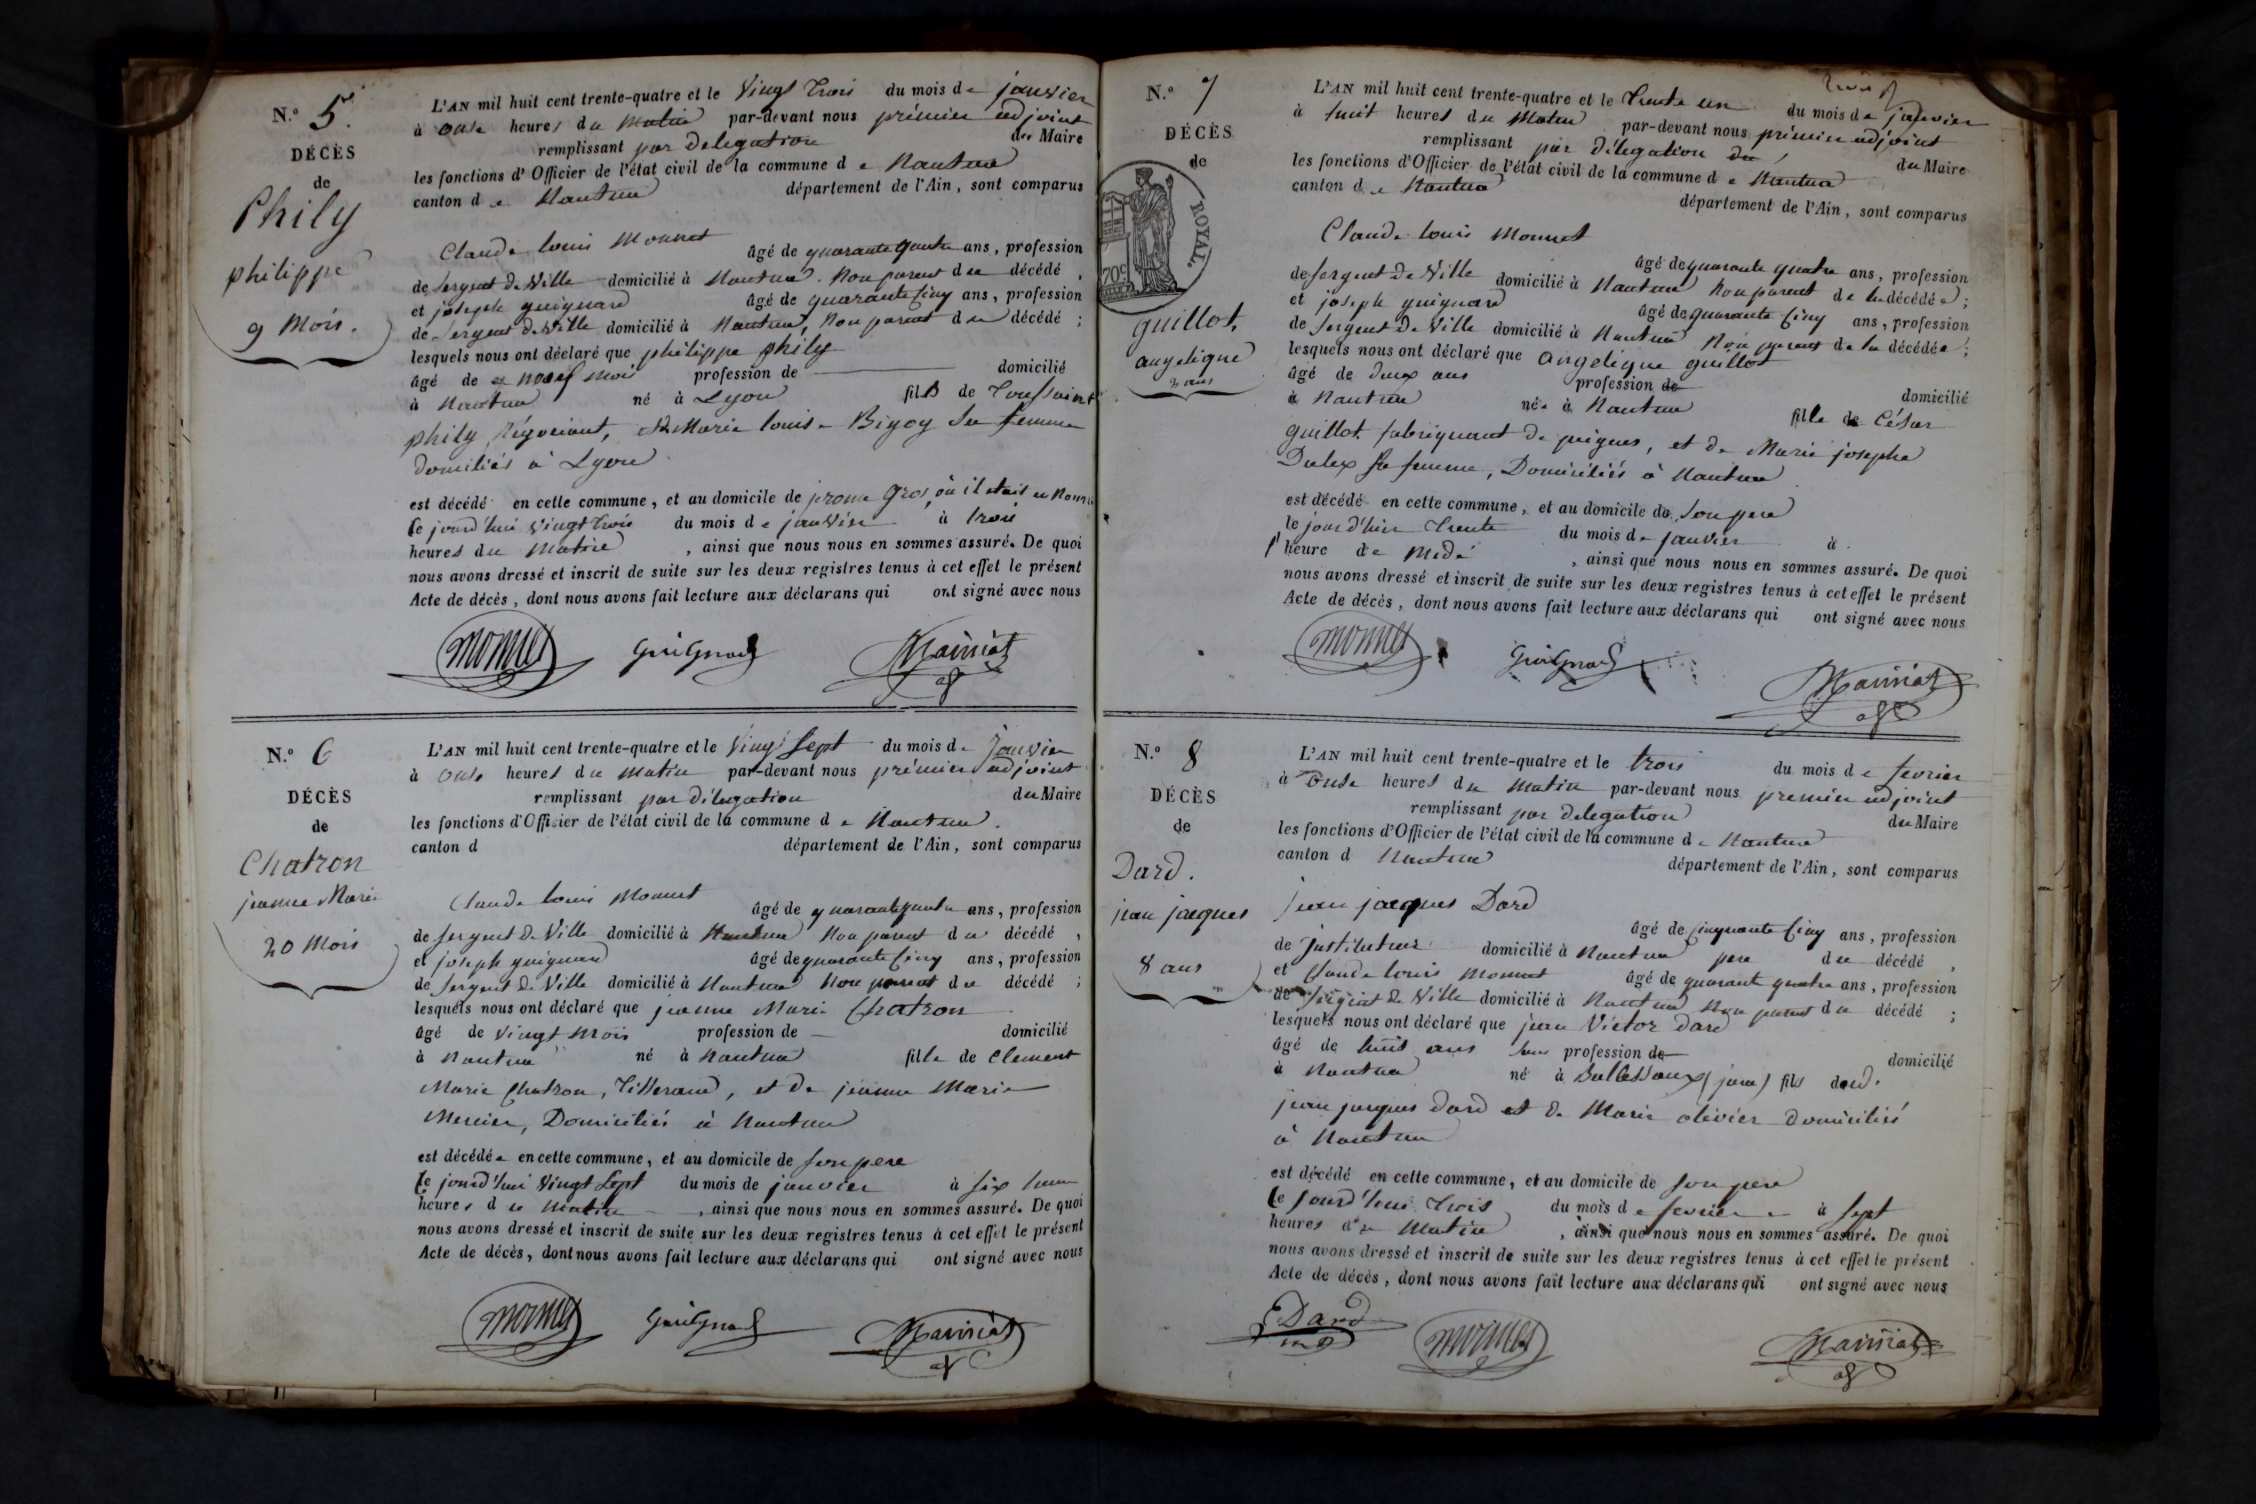 N.° 5.
DÉCÈS
de
Phily
philippe
9 Mois.
L'AN mil huit cent trente-quatre et le Vingt trois du mois de janvier
à onse heures du matin par-devant nous prémier adjoint
remplissant par délegation du Maire
les fonctions d'Officier de l'état civil de la commune de Nantua
canton de Nantua département de l'Ain, sont comparus
Claude louis Monnet âgé de quarante quatre ans, profession
de sergent de Ville domicilié à Nantua. Non parent du décédé,
et joseph guignard âgé de quarante Cinq ans, profession
de sergent de Ville domicilié à Nantua, Non parent du décédé ;
lesquels nous ont déclaré que philippe phily
âgé de neuf mois profession de domicilié
à Nantua né à Lyon fils de Toussaint
phily Négociant, & Marie louise sa femme
domiciliés à Lyon
est décédé en cette commune, et au domicile de jrome Gros, où il étais en
le jourd'hui vingt trois du mois de janvier à trois
heures du Matin, ainsi que nous nous en sommes assuré. De quoi
nous avons dressé et inscrit de suite sur les deux registres tenus à cet effet le présent
Acte de décès, dont nous avons fait lecture aux déclarans qui ont signé avec nous
Monnet Guignard
N.° 6
DÉCÈS
de
Chatron
jeanne Marie
20 Mois
L'AN mil huit cent trente-quatre et le Vingt Sept du mois de Janvier
à onse heures du matin par-devant nous prémier adjoint
remplissant par délegation du Maire
les fonctions d'Officier de l'état civil de la commune de Nantua.
canton d département de l'Ain, sont comparus
Claude louis Monnet âgé de quarante quatre ans, profession
de sergent de Ville domicilié à Nantua Non parent du décédé,
et joseph guignard âgé de quarante Cinq ans, profession
de sergent de Ville domicilié à Nantua Non parent du décédé ;
lesquels nous ont déclaré que jeanne Marie Chatron
âgé de vingt mois profession de domicilié
à Nantua né à Nantua fille de Clement
Marie Chatron, Tisserand, et de jeanne Marie
Mercier, Domiciliés à Nantua
est décédée en cette commune, et au domicile de son pere
le jourd'hui Vingt Sept du mois de janvier à six heure
heures du Matin, ainsi que nous nous en sommes assuré. De quoi
nous avons dressé et inscrit de suite sur les deux registres tenus à cet effet le présent
Acte de décès, dont nous avons fait lecture aux déclarans qui ont signé avec nous
Monnet Guignard
N.° 7
DÉCÈS
de
ROYAL.
70c
guillot,
angelique
2 ans
L'AN mil huit cent trente-quatre et le trente un du mois de janvier
à huit heures du Matin par-devant nous prémier adjoint
remplissant par délegation du du Maire
les fonctions d'Officier de l'état civil de la commune de Nantua
canton de Nantua département de l'Ain, sont comparus
Claude louis Monnet âgé de quarante quatre ans, profession
de sergent de Ville domicilié à Nantua Non parent de la décédée ;
et joseph guignard âgé de quarante Cinq ans, profession
de sergent de Ville domicilié à Nantua Non parent de la décédée ;
lesquels nous ont déclaré que angelique guillot
âgé de deux ans profession de domicilié
à Nantua née à Nantua fille de César
guillot fabriquant de peignes, et de Marie josephe
Dalex sa femme, Domiciliés à Nantua
est décédé en cette commune, et au domicile de son pere
le jour d'hier trente du mois de janvier à
l'heure de Midi, ainsi que nous nous en sommes assuré. De quoi
nous avons dressé et inscrit de suite sur les deux registres tenus à cet effet le présent
Acte de décès, dont nous avons fait lecture aux déclarans qui ont signé avec nous
Monnet Guignard
N.° 8
DÉCÈS
de
Dard.
jean jacques
8 ans
L'AN mil huit cent trente-quatre et le trois du mois de fevrier
à onse heures du Matin par-devant nous premier adjoint
remplissant par delegation du Maire
les fonctions d'Officier de l'état civil de la commune de Nantua
canton d Nantua département de l'Ain, sont comparus
jean jacques Dard âgé de cinquante Cinq ans, profession
de justituteur domicilié à Nantua pere du décédé,
et Claude louis Monnet âgé de quarante quatre ans, profession
de sergent de Ville domicilié à Nantua Non parent du décédé ;
lesquels nous ont déclaré que jean Victor Dard
âgé de huit ans sans profession de domicilié
à Nantua né à (jura) fils de
jean jacques Dard et de Marie olivier domiciliés
à Nantua
est décédé en cette commune, et au domicile de son pere
le jourd'hui trois du mois de fevrier à sept
heures du Matin, ainsi que nous nous en sommes assuré. De quoi
nous avons dressé et inscrit de suite sur les deux registres tenus à cet effet le présent
Acte de décès, dont nous avons fait lecture aux déclarans qui ont signé avec nous
Dard Monnet